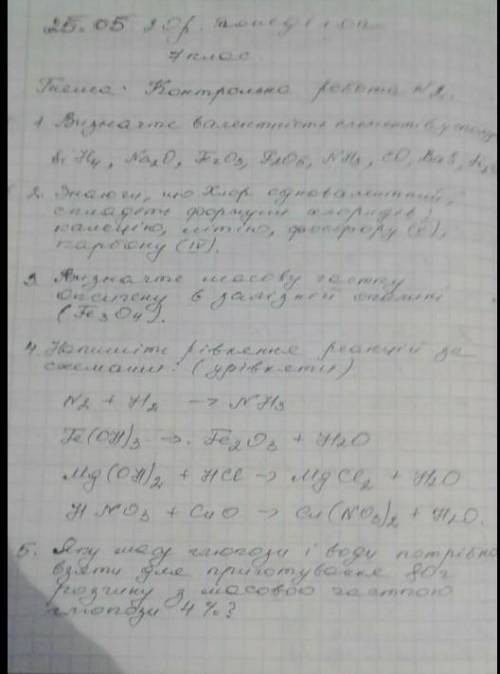 25.05
7 клас.
Тема: Контрольна робота №2.
1. Визначте валентність елементів у
SiH4, Na2O, Fe2O3, P2O5, NH3, CO, BaS,
2. Знаючи, що Хлор одновалентний,
складіть формули хлоридів:
кальцію, літію, фосфору (V),
карбону (IV).
3. Визначте масову частку
оксигену в залізній окалині
(Fe3O4).
4. Напишіть рівняння реакцій за
схемами: (урівняти)
N2 + H2 → NH3
Fe(OH)3 → Fe2O3 + H2O
Mg(OH)2 + HCl → MgCl2 + H2O
HNO3 + CuO → Cu(NO3)2 + H2O.
5. Яку масу глюкози і води потрібно
взяти для приготування 80г
розчину з масовою часткою
глюкози 4%?